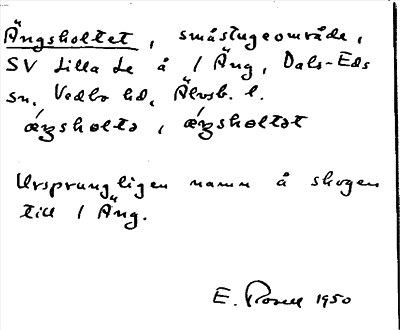 Ängsholtet, småstugeområde,
SV Lilla Le å 1 Äng, Dals-Eds
sn, Vedbo hd, Älvsb. l.
ǽŋshɵltə, ǽŋshɵltət
Ursprungligen namn å skogen
till 1 Äng.
E. Rosell 1950